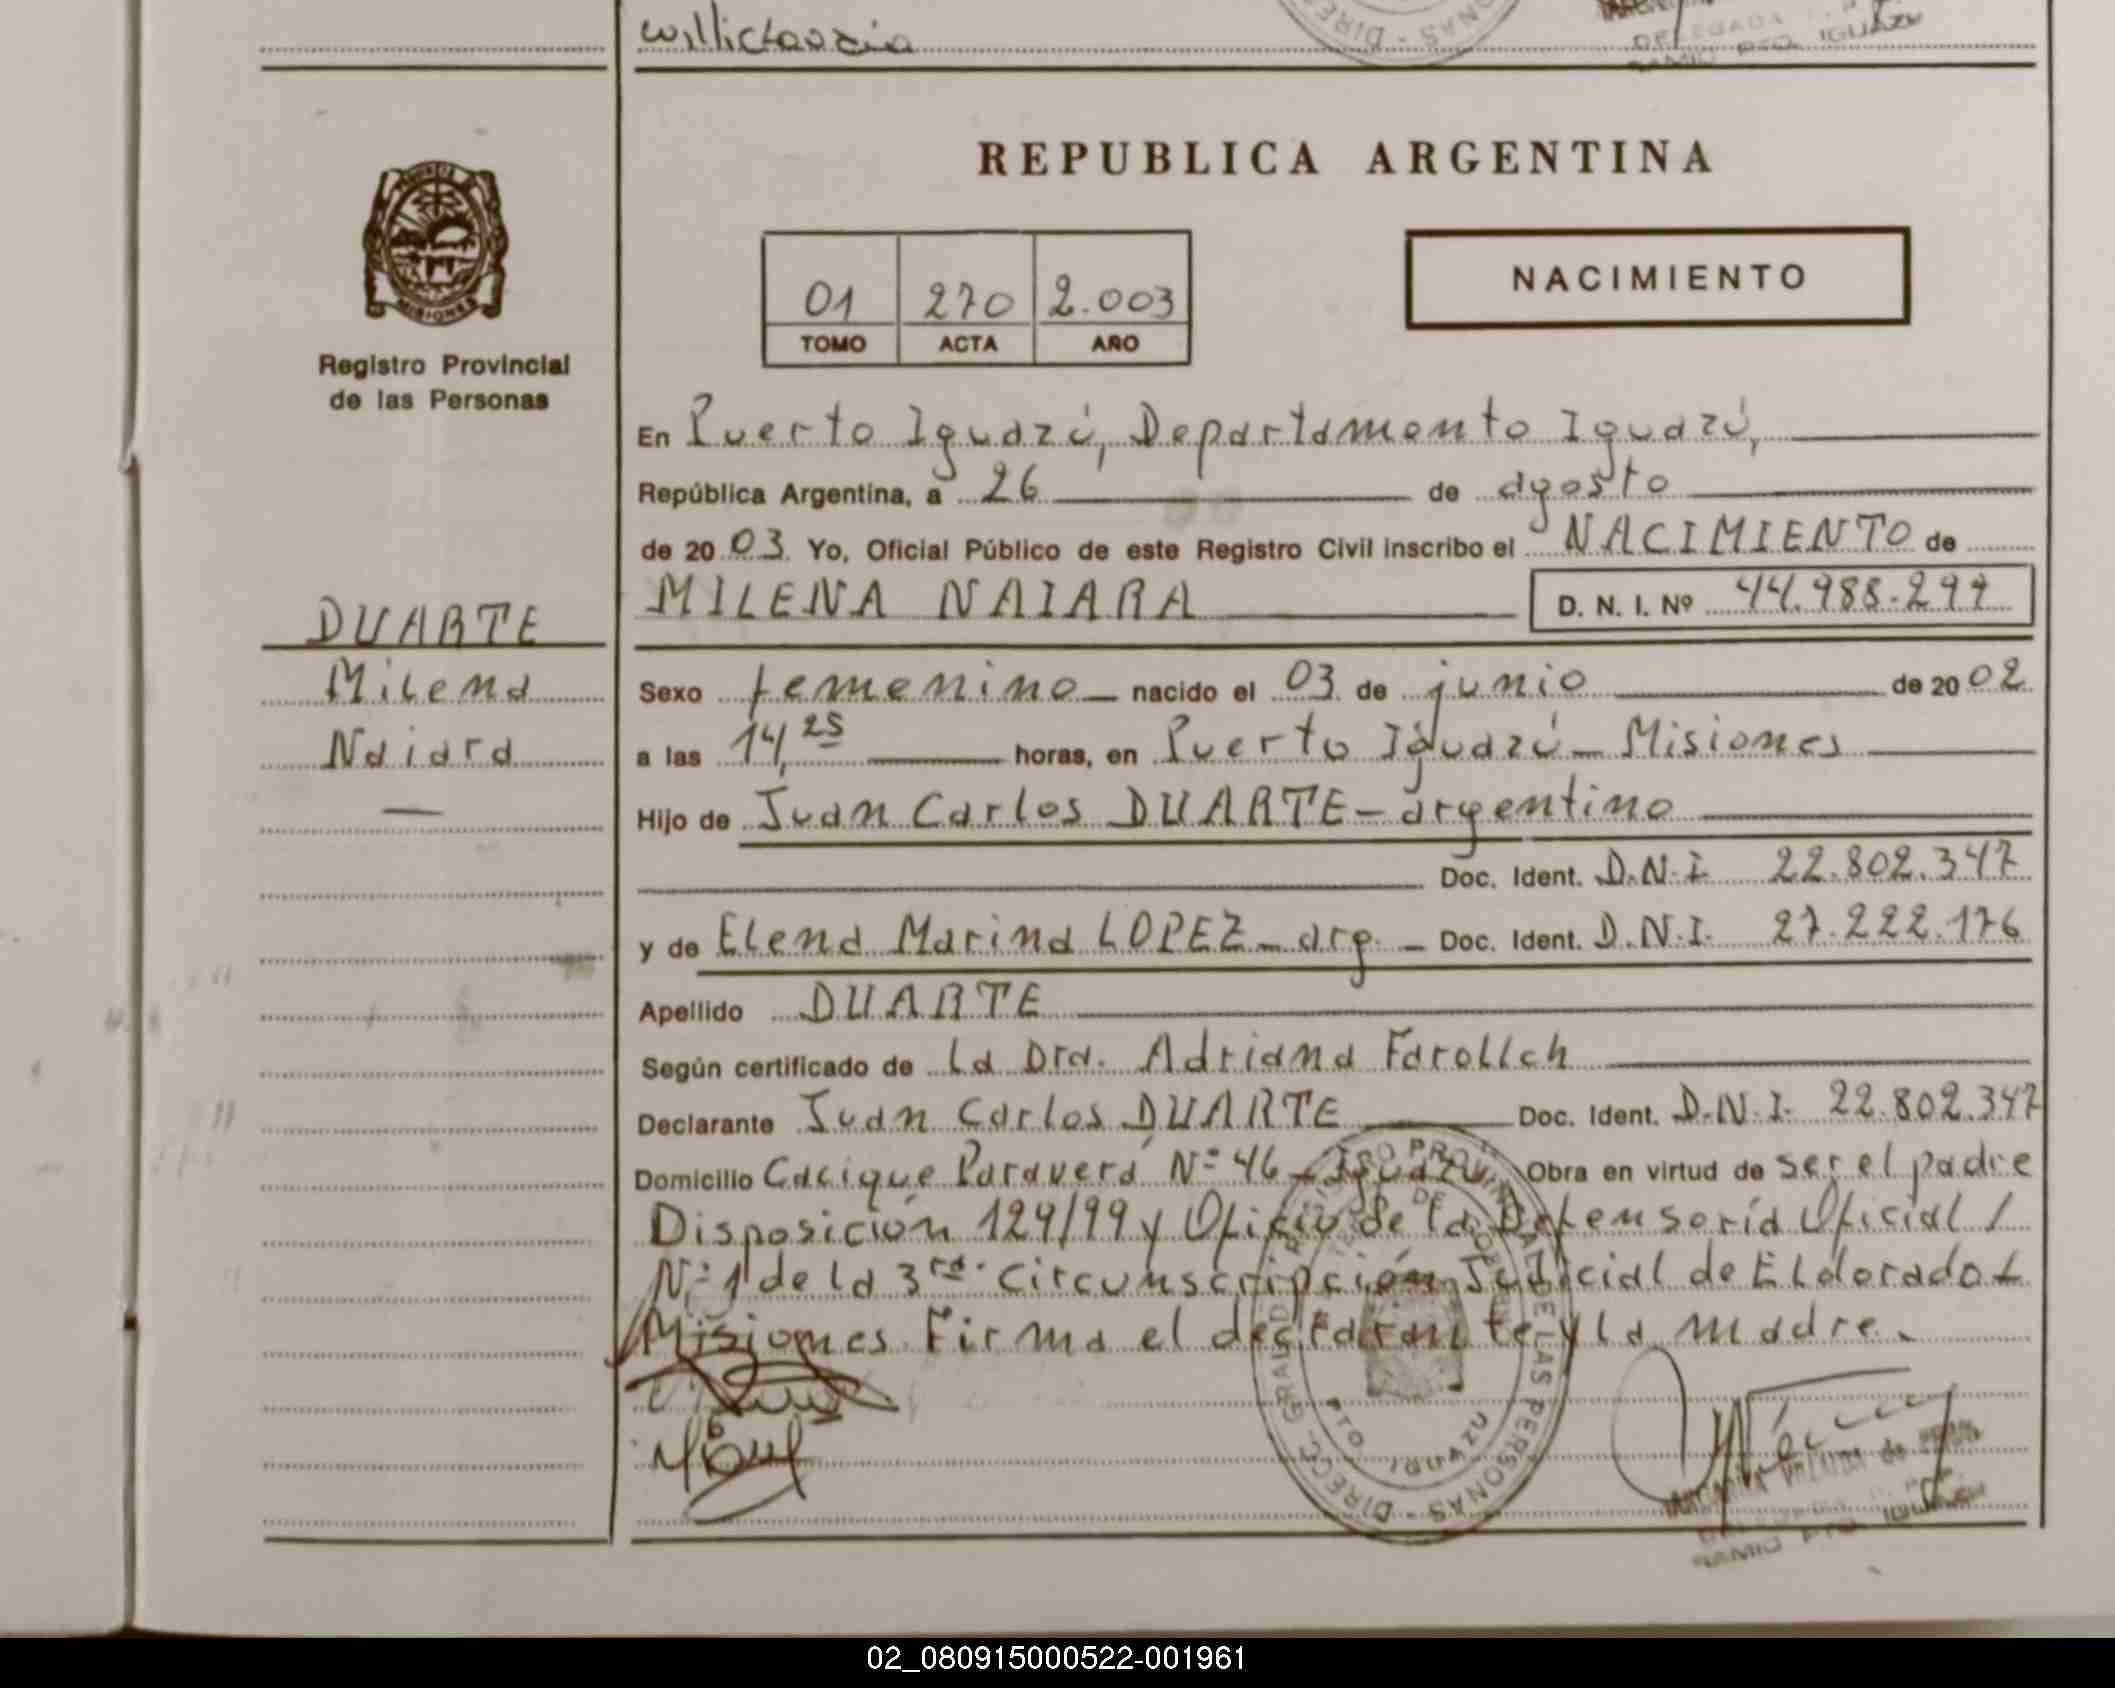 Willichavzia
DIREC - SANO
DELEGADA
RAMID PTO. IGUAZU
REPUBLICA ARGENTINA
01 270 2.003
TOMO ACTA AÑO
NACIMIENTO
PROVINCIA DE
MISIONES
Registro Provincial
de las Personas
En Puerto Iguazú, Departamento Iguazú,
República Argentina, a 26 de agosto
de 20 03 Yo, Oficial Público de este Registro Civil inscribo el NACIMIENTO de
MILENA NAIARA D. N. I. Nº 44.988.297
DUARTE
Milena
Naiara
Sexo femenino nacido el 03 de junio de 20 02
a las 14,25 horas, en Puerto Iguazú - Misiones
Hijo de Juan Carlos DUARTE - argentino
Doc. Ident. D.N.I. 22.802.347
y de Elena Marina LOPEZ - arg. - Doc. Ident. D.N.I. 27.222.176
Apellido DUARTE
Según certificado de la Dra. Adriana Farollch
Declarante Juan Carlos DUARTE Doc. Ident. D.N.I. 22.802.347
Domicilio Cacique Paraverá Nº 46 - Iguazú Obra en virtud de ser el padre
Disposición 129/99 y Oficio de la Defensoría Oficial /
Nº 1 de la 3ra. Circunscripción Judicial de Eldorado
Misiones. Firma el declarante y la madre.
REGISTRO PROVINCIAL DE LAS PERSONAS - DIRECC. GRAL.
PTO. IGUAZU
RAMID PTO. IGUAZU
02_080915000522-001961